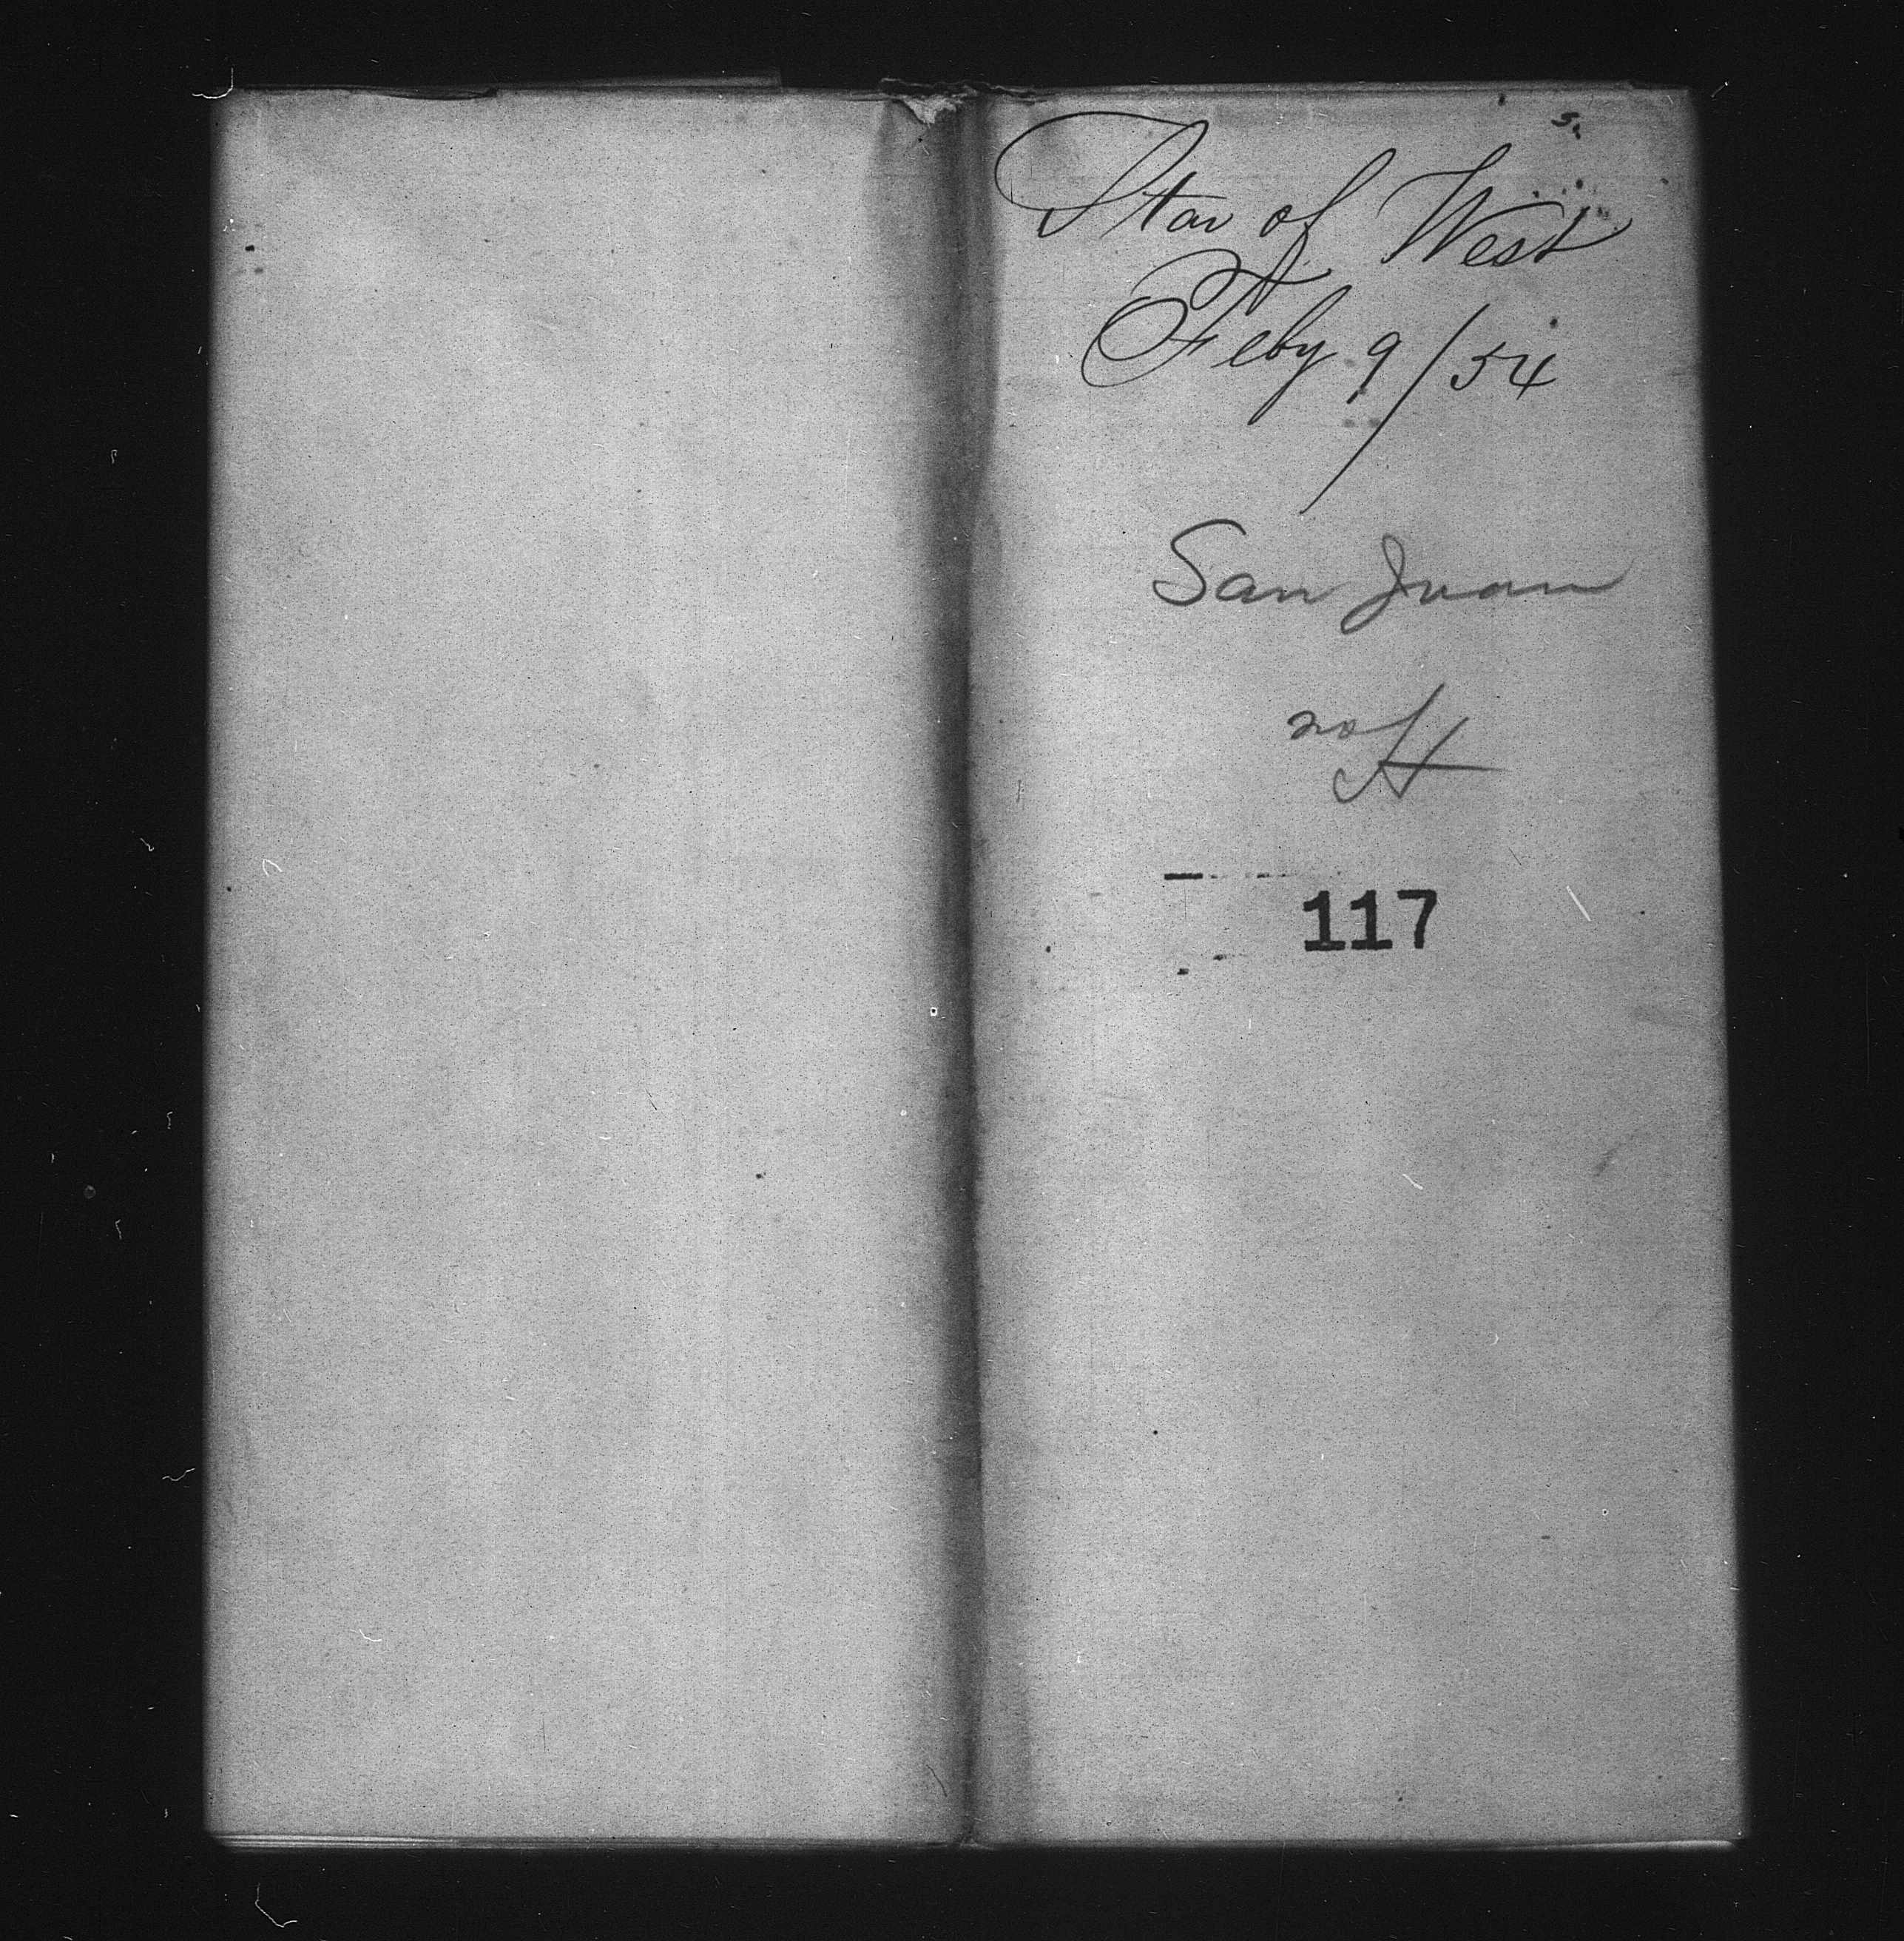 Star of West
Feby 9/54
San Juan
117